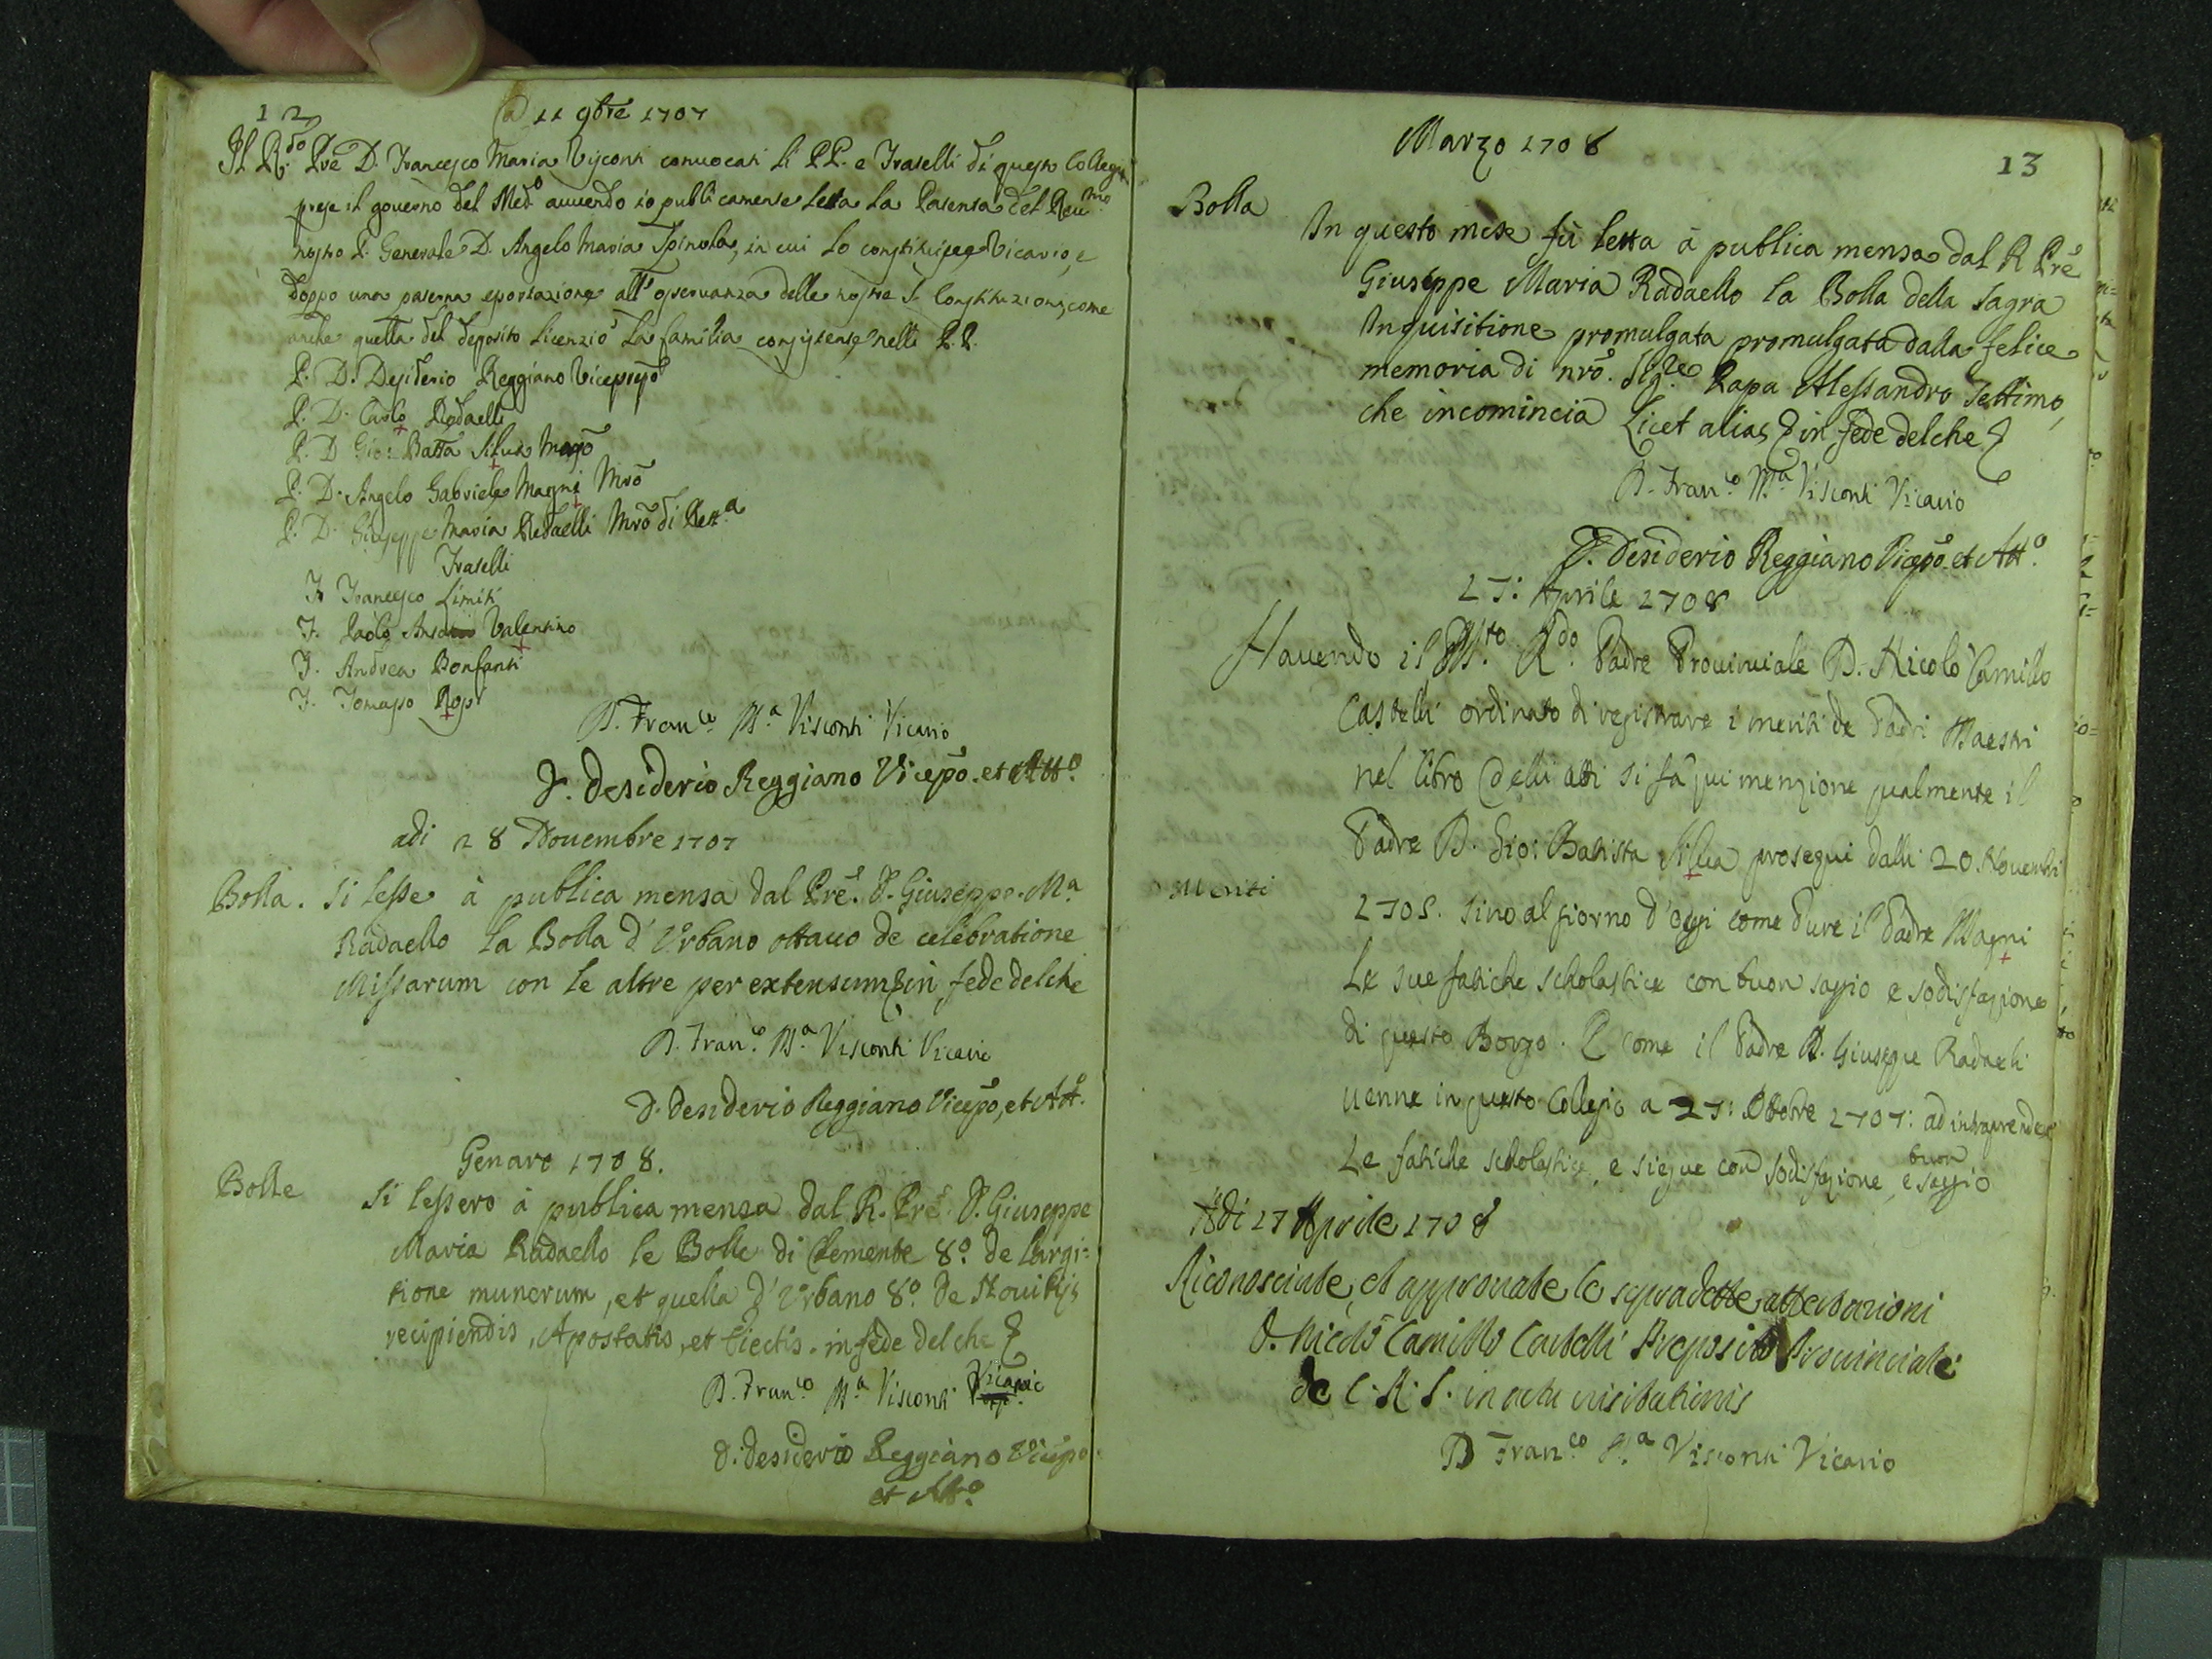 12
a 11 9bre 1707
Il R.do Pre D. Francesco Maria Visconti convocati li PP. e Fratelli di questo Collegio
prese il governo del Med.o avvendo io publicamente letta la Patente del Reu.mo
nostro P. Generale D. Angelo Maria Spinola, in cui lo constituisce Vicario, e
doppo una paterna esortazione all'osservanza delle nostre S. Constituzioni, come
anche quella del deposito licenziò la familia consistente nelli P.P.
P. D. Desiderio Reggiano Viceprep.o
P. D. Carlo Redaelli
P. D. Gio: Batta Silva Mro
P. D. Angelo Gabriele Magni Mro
P. D. Giuseppe Maria Redaelli Mro di Rett.a
Fratelli
F. Francesco Limiti
F. Paolo Valentino
F. Andrea Bonfanti
F. Tomaso Rossi
D. Fran.co M.a Visconti Vicario
D. Desiderio Reggiano Vicepo. et Att.o
adi 28 Novembre 1707
Bolla. Si lesse à publica mensa dal Pre. D. Giuseppe M.a
Radaello la Bolla d'Urbano ottavo de celebratione
Missarum con le altre per extensum, in fede del che
D. Fran.co M.a Visconti Vicario
D. Desiderio Reggiano Vicepo, et Att.
Genaro 1708.
Bolle Si lessero à publica mensa dal R. Pre D. Giuseppe
Maria Radaello le Bolle di Clemente 8.o de largi=
tione munerum, et quella d'Urbano 8.o de Novitijs
recipiendis, Apostatis, et Eiectis. in fede del che
D. Fran.co M.a Visconti Vicario
D. Desiderio Reggiano Vicepo.
et Att.o
Marzo 1708
13
Bolla In questo mese fù letta à publica mensa dal R Pre
Giuseppe Maria Radaello la Bolla della Sagra
Inquisitione promulgata promulgata dalla felice
memoria di nro. Sig.re Papa Alessandro Settimo,
che incomincia Licet alias in fede del che
D. Fran.co M.a Visconti Vicario
D. Desiderio Reggiano Vicepo. et Att.o
27: Aprile 1708
Havendo il M.to R.do Padre Provinciale D. Nicolò Camillo
Castelli ordinato di registrare i meriti de Padri Maestri
nel libro delli atti si fà qui menzione qualmente il
Padre D. Gio: Batista Silva proseguì dalli 20. Novembri
Meriti 1705. sino al giorno d'oggi come pure il Padre Magni
Le sue fatiche scholastice con buon saggio e sodisfazione
di questo Borgo. E come il Padre D. Giuseppe Radaeli
venne in questo Collegio a 27: Ottobre 1707: ad intraprendere
Le fatiche scholastice, e siegue con sodisfazione, e buon saggio
Adi 27 Aprile 1708
Riconosciute, et approvate le sopradette attestazioni
D. Nicolò Camillo Castelli Preposito Provinciale
de C. R. S. in actu visitationis
D Fran.co M.a Visconti Vicario